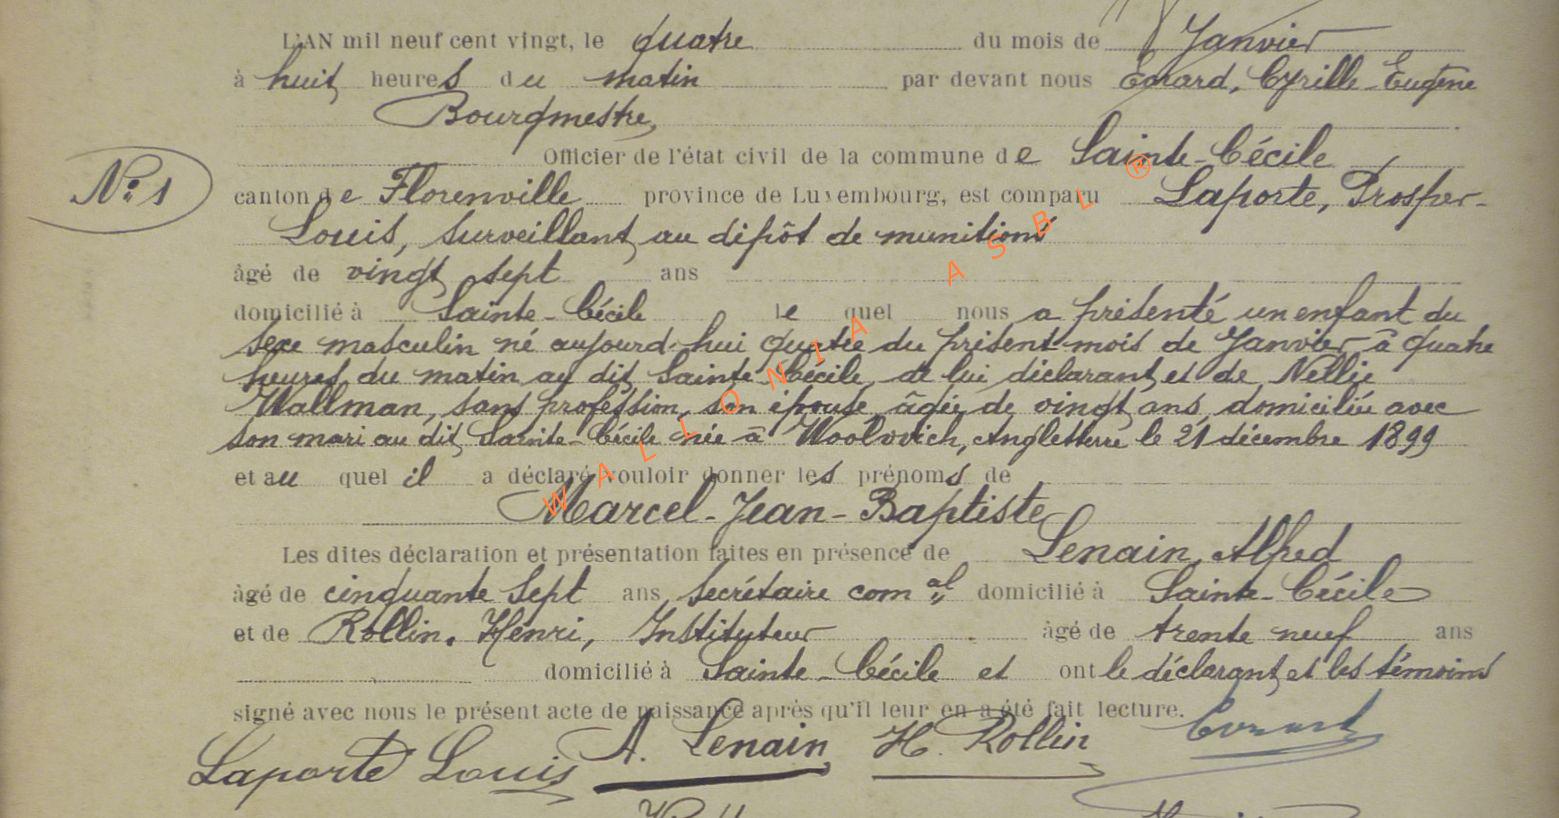 L'AN mil neuf cent vingt, le quatre du mois de Janvier
à huit heures du matin par devant nous Evrard, Cyrille-Eugène
Bourgmestre,
Officier de l'état civil de la commune de Sainte-Cécile
N° 1
canton de Florenville province de Luxembourg, est comparu Laporte, Prosper-
Louis, surveillant au dépôt de munitions
âgé de vingt sept ans
domicilié à Sainte-Cécile le quel nous a présenté un enfant du
sexe masculin né aujourd'hui quatre du présent mois de Janvier à quatre
heures du matin au dit Sainte-Cécile, de lui déclarant et de Nellie
Wallman, sans profession, son épouse, âgée de vingt ans, domiciliée avec
son mari au dit Sainte-Cécile née à Woolwich, Angleterre le 21 décembre 1899
et au quel il a déclaré vouloir donner les prénoms de
Marcel-Jean-Baptiste
Les dites déclaration et présentation faites en présence de Lenain, Alfred
âgé de cinquante sept ans, secrétaire comal domicilié à Sainte-Cécile
et de Rollin, Henri, Instituteur âgé de trente neuf ans
domicilié à Sainte-Cécile et ont le déclarant et les témoins
signé avec nous le présent acte de naissance après qu'il leur en a été fait lecture.
Laporte Louis A. Lenain H. Rollin Evrard
WALLONIA ASBL ®